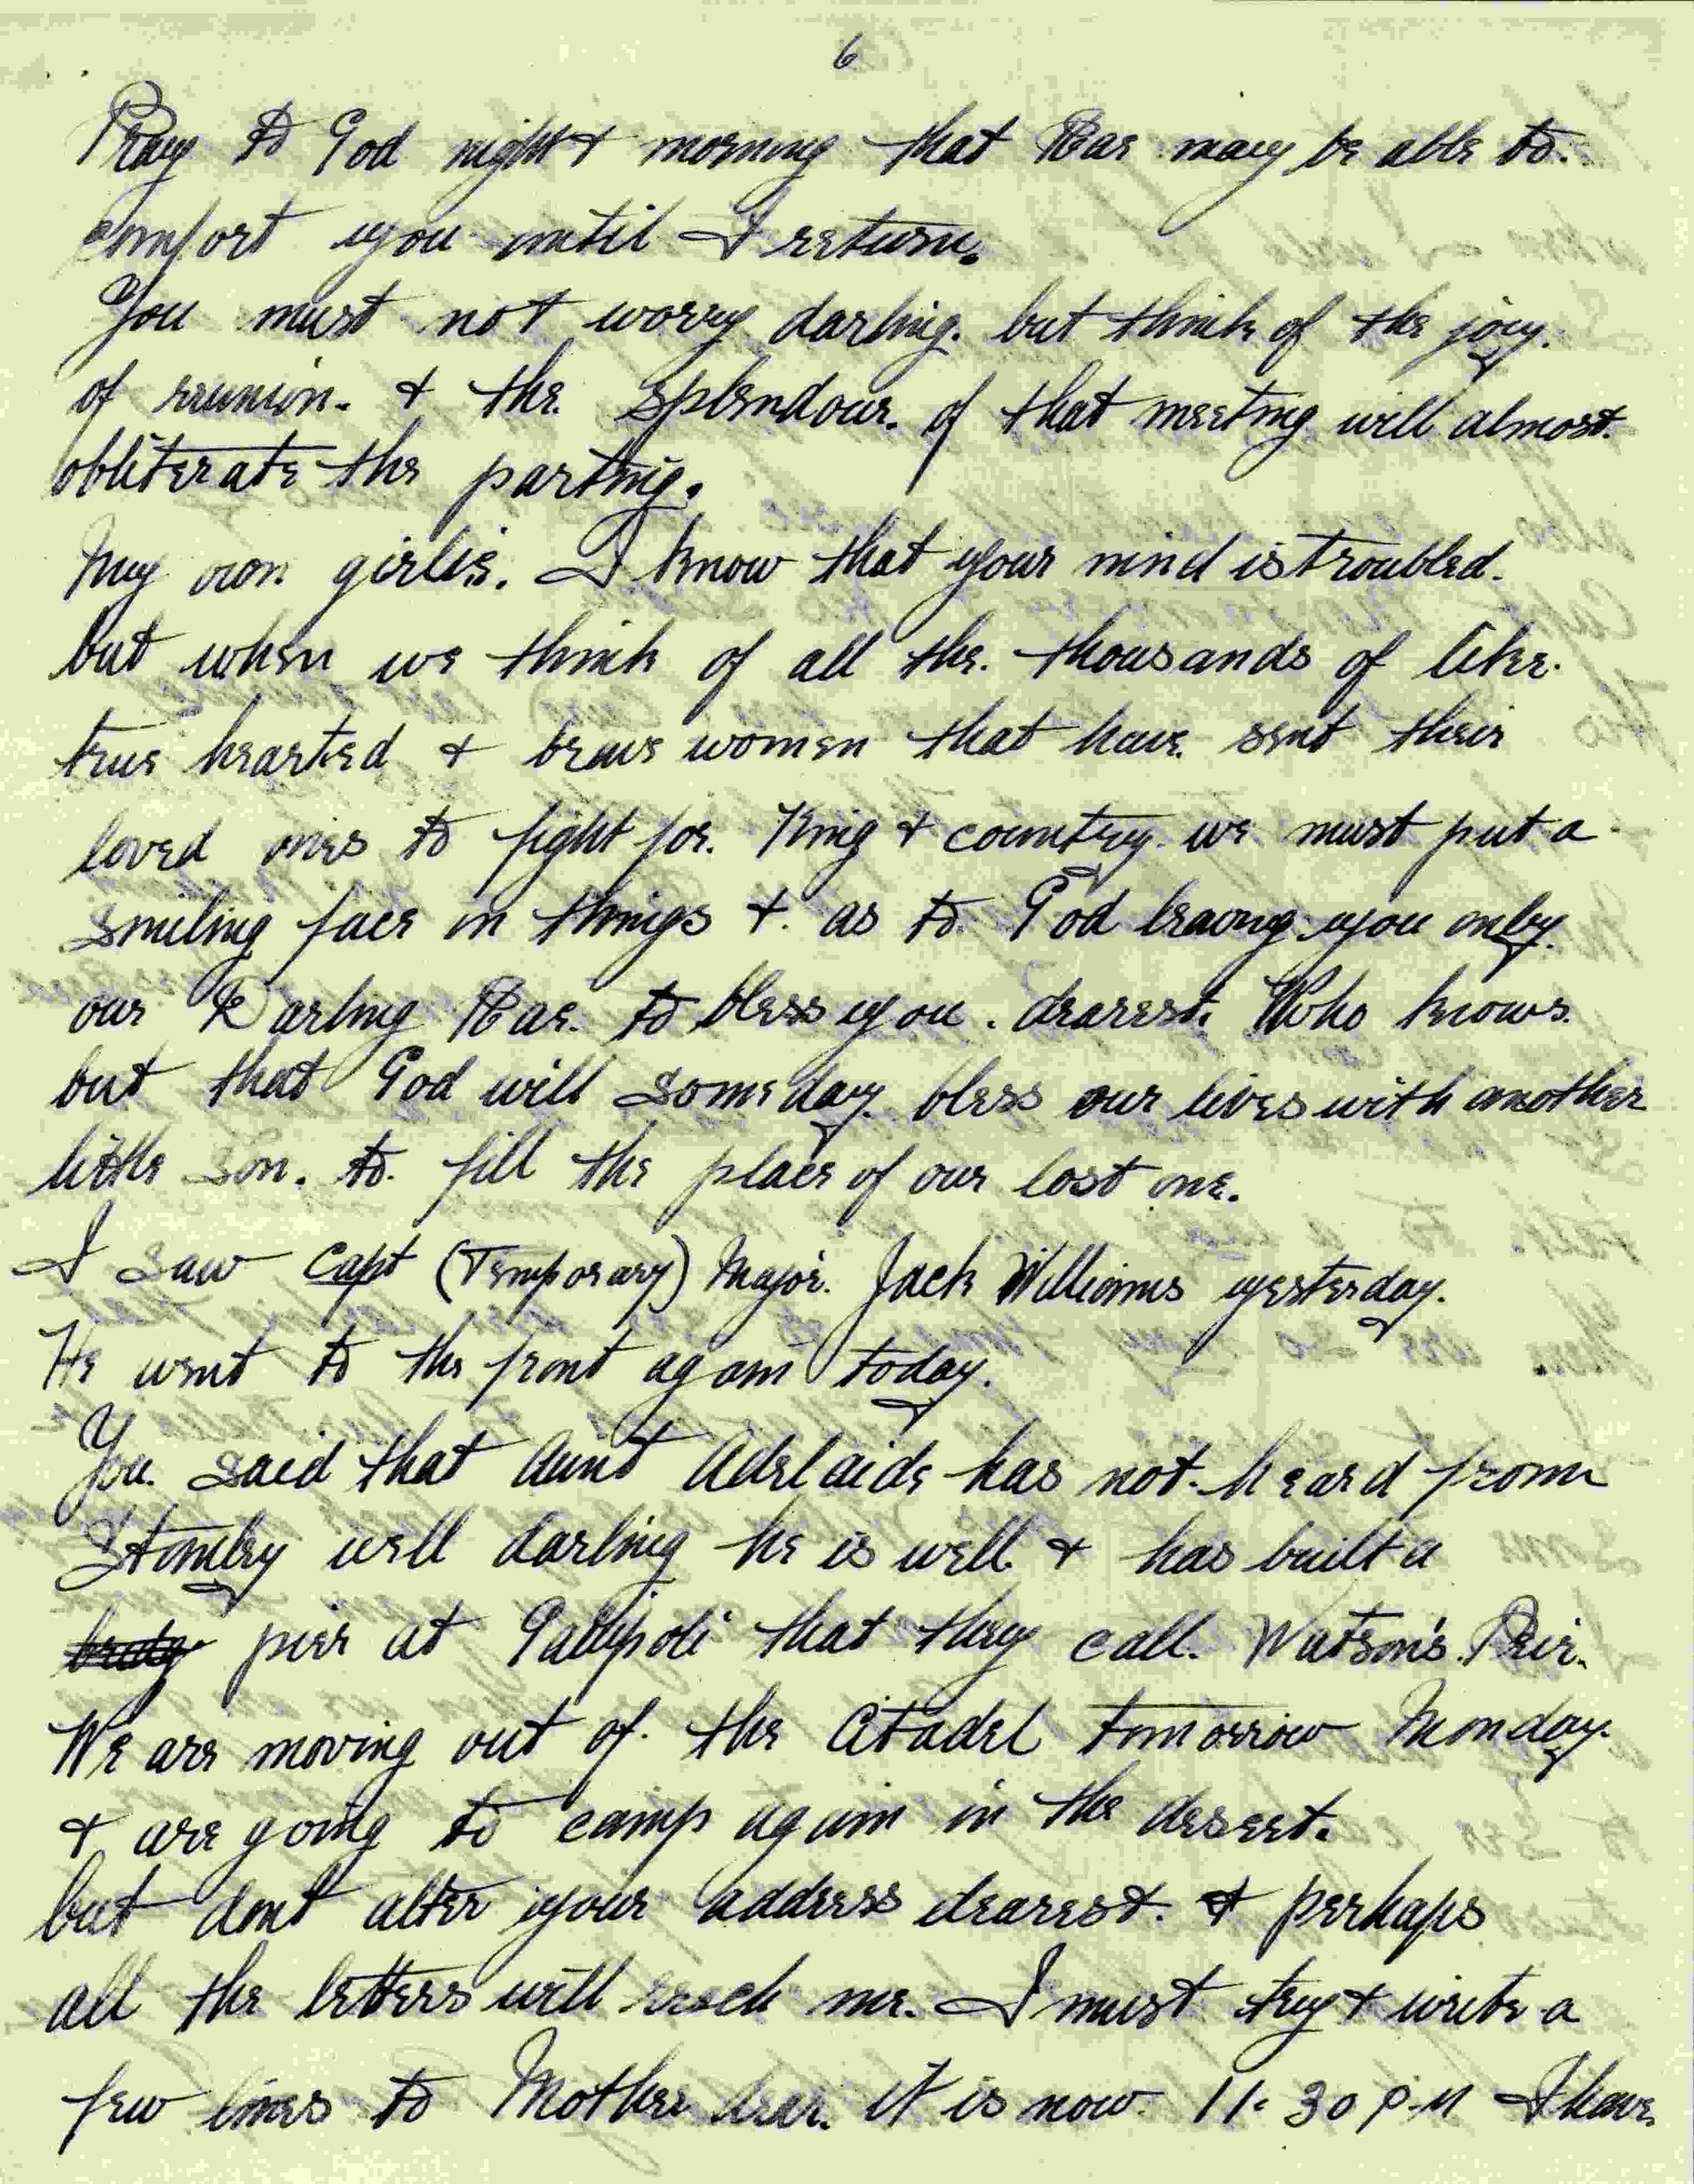 6
Pray to God night & morning that Rae may be able to.
comfort you until I return.
You must not worry darling. but think of the joy.
of reunion. & the. splendour. of that meeting will almost.
obliterate the parting.
My own girlie. I know that your mind is troubled.
but when we think of all the. thousands of like.
true hearted & brave women that have. sent their
loved ones to fight for. King & country. we must put a
smiling face on things &. as to. God leaving you only.
our Darling Rae. to bless you. dearest. Who knows.
but that God will someday bless our lives with another
little son. to. fill the place of our lost one.
I saw Capt (Temporary) Major. Jack Williams yesterday.
He went to the front again today.
You. said that Aunt Adelaide has not heard from
Stanley well darling he is well. & has built a
pier at Gallipoli that they call. Watson's. Peir.
We are moving out of. the Citadel tomorrow Monday.
& are going to camp again in the desert.
but dont alter your address dearest. & perhaps
all the letters will reach me. I must try & write a
few lines to Mother dear. It is now. 11. 30 p.m I have.